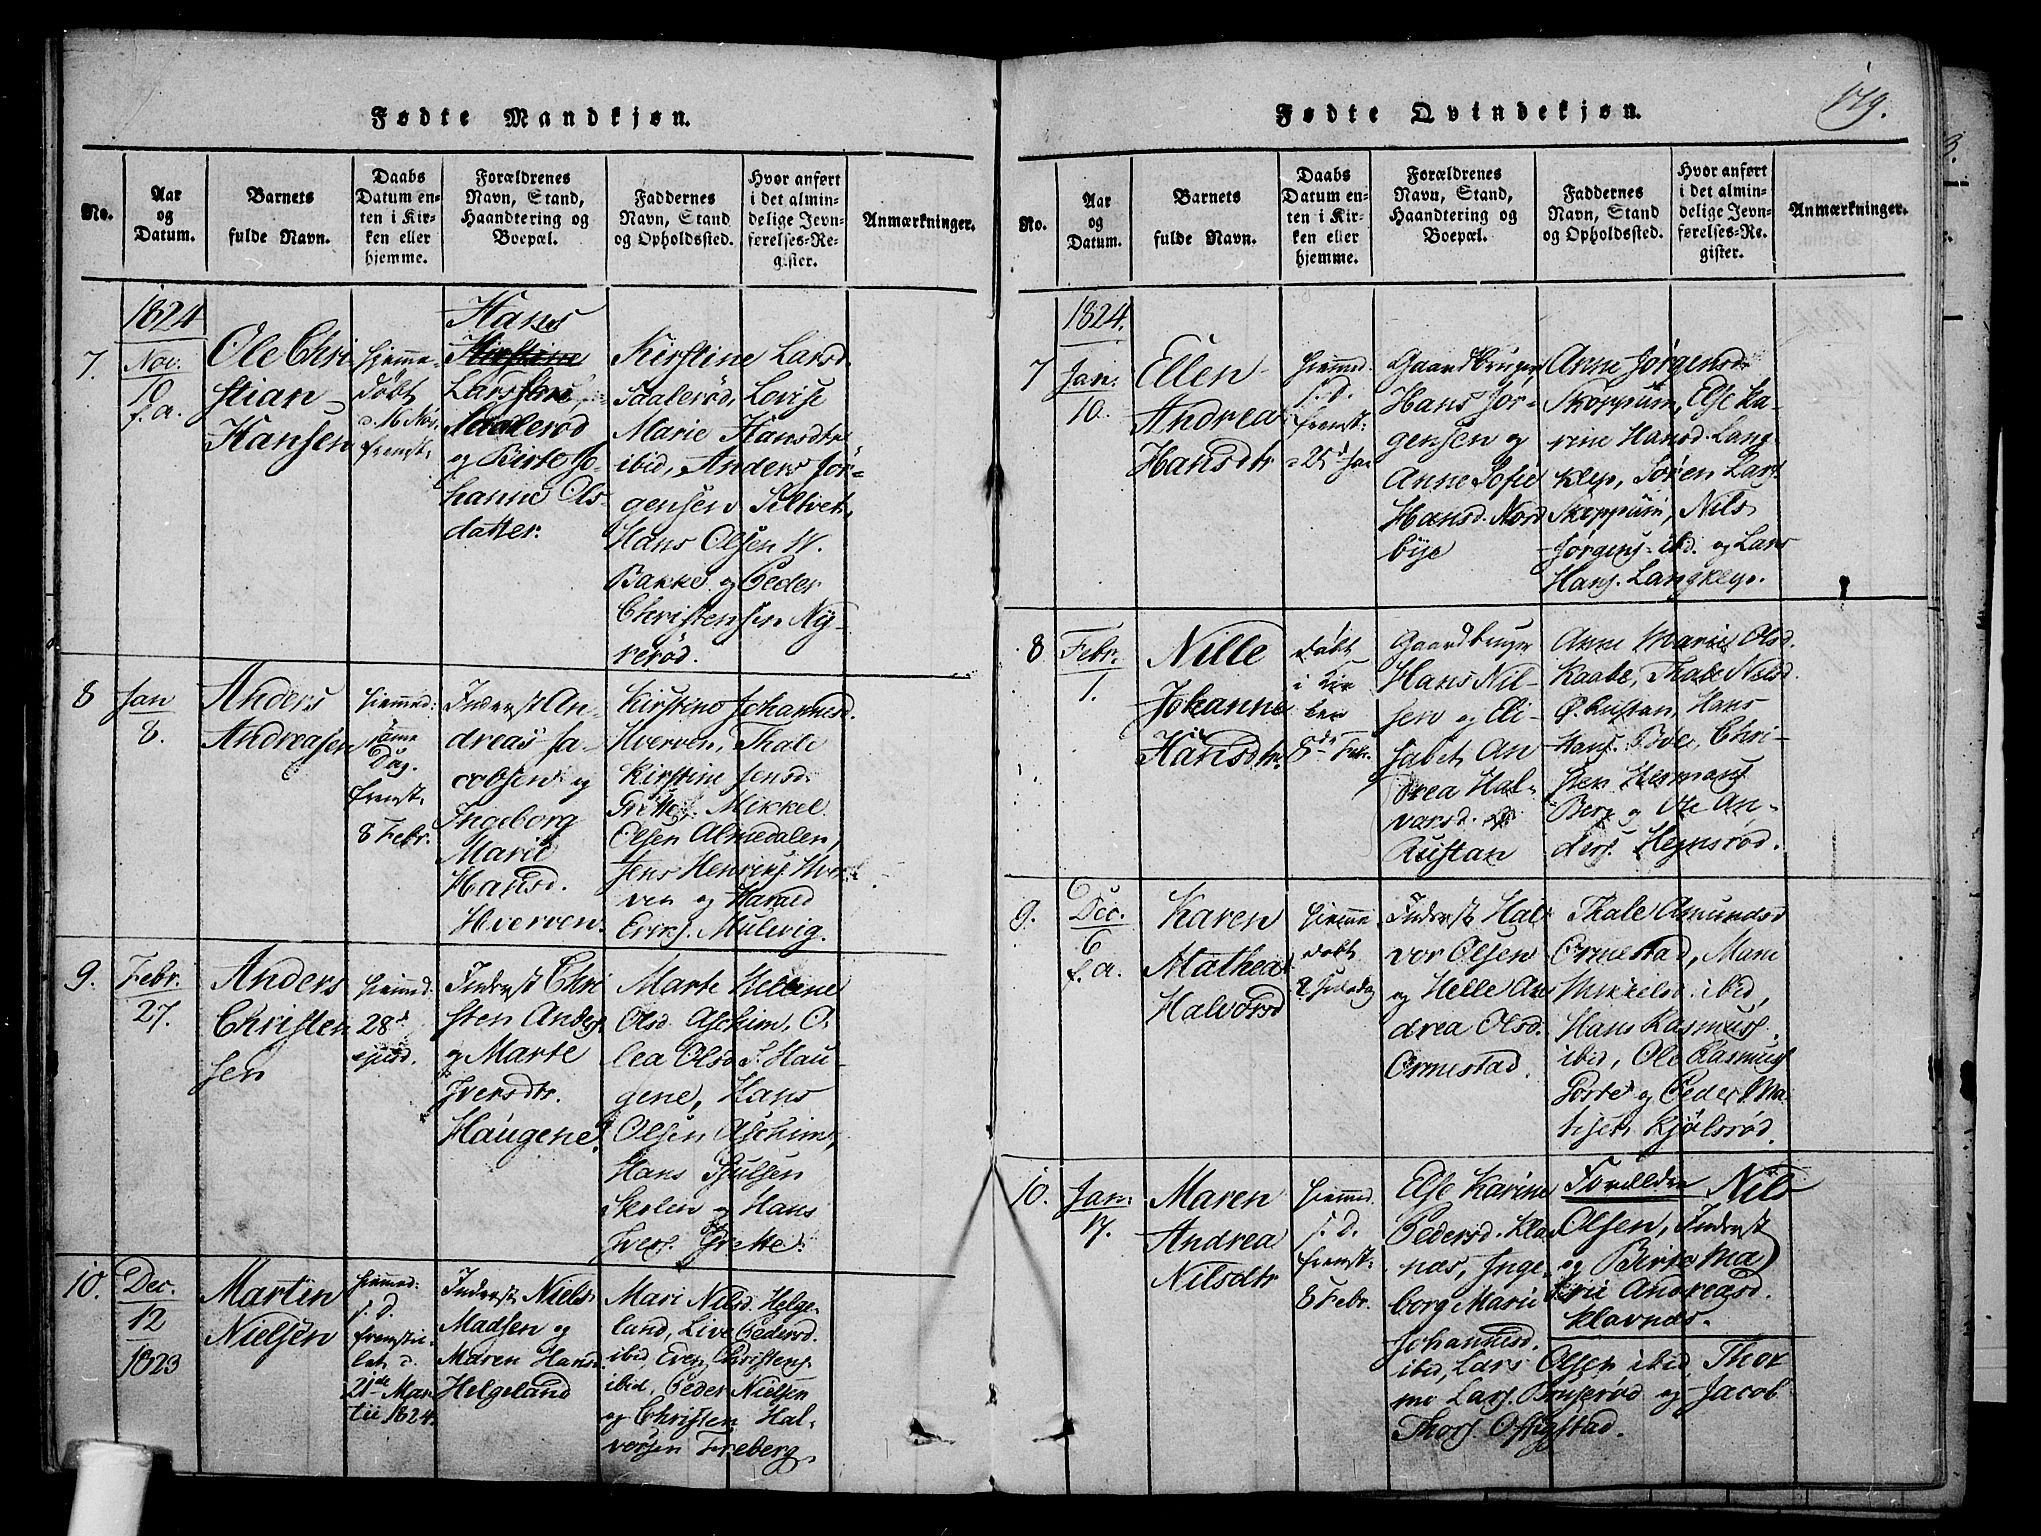 179.
Fødte Mandkjøn.
No.
Aar
og
Datum.
Barnets
fulde Navn.
Daabs
Datum en-
ten i Kir-
ken eller
hjemme.
Forældrenes
Navn, Stand,
Haandtering og
Boepæl.
Faddernes
Navn, Stand
og Opholdssted.
Hvor anført
i det almin-
delige Jevn-
førelses-Re-
gister.
Anmærkninger.
1824
7.
Nov.
10
f. a.
Ole Chri
stian
Hansen
hjemme
døbt
fremst.
Hans
Kirstine
Larssen
Saalerød
og Birte Jo-
hanne Ols-
datter.
Kirstine Larsd.
Saalerød, Lovise
Marie Hansdtr
ibid, Anders Jör-
gensen Siltvet,
Hans Olsen N.
Bakke og Peder
Christensen Ny-
rerød.
8
Jan
8.
Anders
Andreasen
hjemmed.
samme
Dag.
fremst.
8 Febr.
Inderst An-
dreas Ja-
cobsen og
Ingeborg
Marie
Hansd.
Hverven.
Kirstine Johannesd.
Hverven, Thale
Kirstine Jensd.
Grette, Mikkel
Olsen Almedalen,
Jens Henrichs. Hver-
ven og Harald
Erichs. Mulvig.
9.
Febr.
27.
Anders
Christen
sen
hjemmed.
28d
ejusd.
Inderst Chri
sten Anders.
og Marte
Iversdtr.
Haugene.
Marte Hellene
Olsd. Aschim, O-
lea Olsd. S. Hau-
gene, Hans
Olsen Aschim,
Hans Poulsen
Skolen og Hans
Ivers. Grette.
10.
Dec.
12
1823
Martin
Nielsen
hjemmed.
s. D.
fremstil-
let d.
21de Mar-
tii 1824.
Inderst Niels
Madsen og
Maren Hansd.
Helgeland
Mari Nilsd. Helge-
land, Live Pedersd.
ibid, Even Christens.
ibid, Peder Nielsen
og Christen Hal-
vorsen Freberg.
Fødte Qvindekjøn.
No.
Aar
og
Datum.
Barnets
fulde Navn.
Daabs
Datum en-
ten i Kir-
ken eller
hjemme.
Forældrenes
Navn, Stand,
Haandtering og
Boepæl.
Faddernes
Navn, Stand
og Opholdssted.
Hvor anført
i det almin-
delige Jevn-
førelses-Re-
gister.
Anmærkninger.
1824.
7
Jan.
10.
Ellen
Andrea
Hansdtr
hjemmed.
s. D.
fremst.
25d Jan
Gaardbruger
Hans Jör-
gensen og
Anne Sofie
Hansd. Nord
bye
Anne Jørgensd.
Skoppum, Else Ka-
rine Hansd. Lang-
klep, Søren Lars.
Skoppum, Nils
Jörgens. ibd. og Lars
Hans. Langklep.
8
Febr.
1.
Nille
Johanne
Hansdtr.
døbt
i Kir
ken
8de Febr.
Gaardbruger
Hans Nil-
sen og Eli-
sabet An-
drea Hal-
varsd.
Rustan
Anne Marie Olsd.
Kaabe, Thale Nilsd.
Ø. Rustan, Hans
Hans. Bøe, Chri-
sten Hermans.
Berg og Ole An-
ders. Hejnsrød.
9.
Dec.
6
f. a.
Karen
Mathea
Halvorsd
hjemme
døbt
2 Juledag
Inderst Hal-
vor Olsen
og Helle An
drea Olsd.
Ormestad.
Thale Amundsd
Ormestad, Mari
Mikkelsd. ibid,
Hans Rasmus.
ibid, Ole Rasmus.
Borre og Peder Ma-
thisen Kjølsrød.
10.
Jan.
17.
Maren
Andrea
Nilsdtr
hjemmed.
s. D.
fremst.
8 Febr.
Else Karine
Pedersd. Klav
nas, Inge-
borg Marie
Johannisd.
ibid, Lars Olsen ibid, Thor
mo Lars. Bruserød og Jacob
Thors. Oshøgstad.
Forældre Nils
Olsen, Inderst
og Birte Ma
rie Andreasd.
Klavnæs.